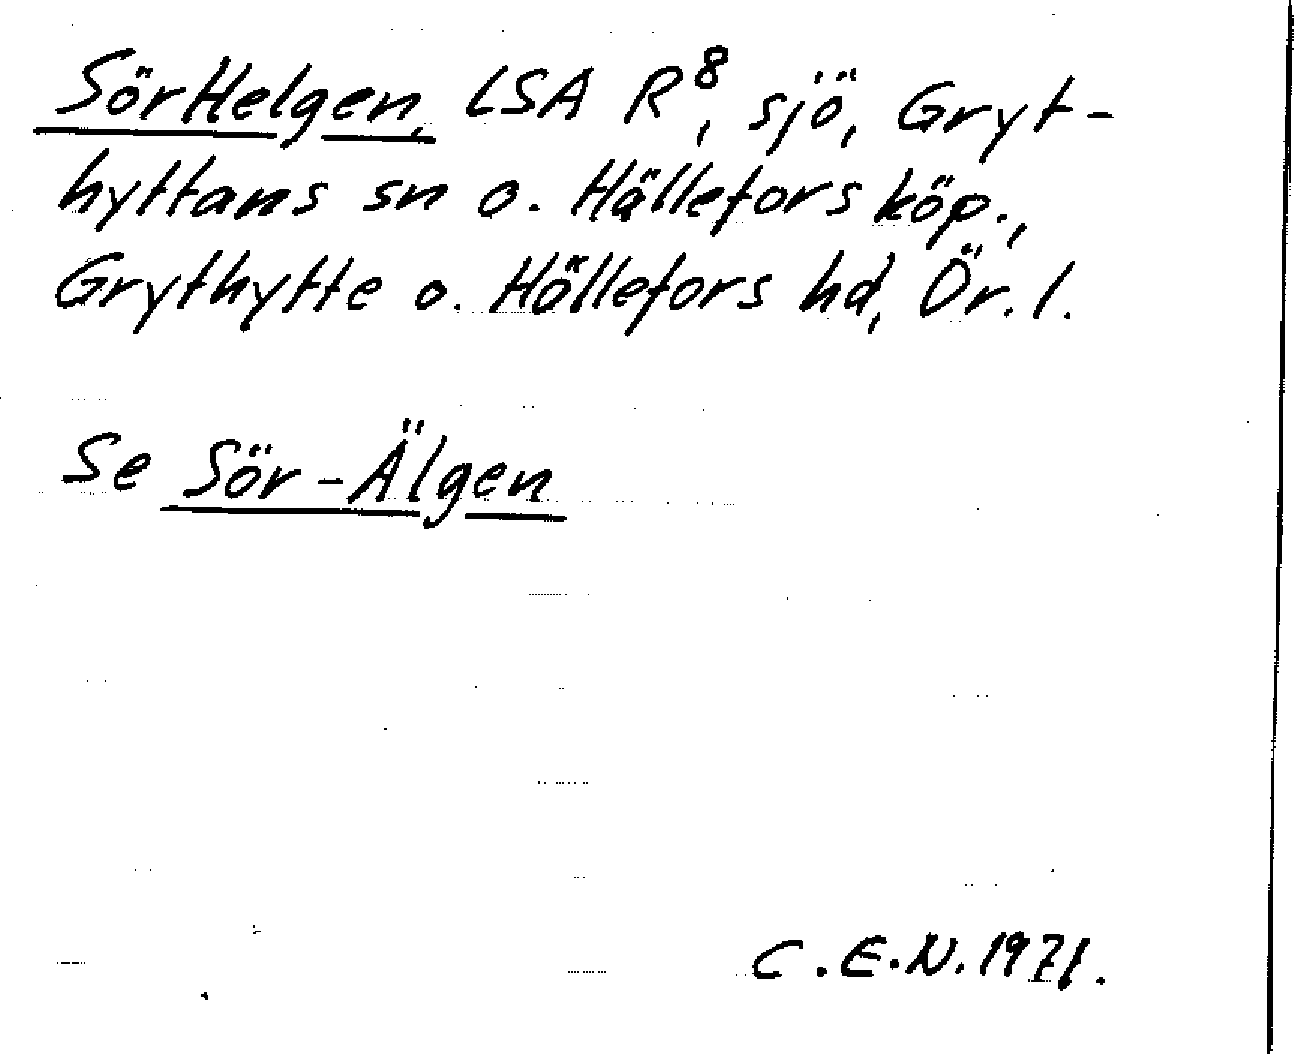 SörHelgen, LSA R⁸, sjö, Gryt-
hyttans sn o. Hällefors köp.,
Grythytte o. Hällefors hd, Ör. l.
Se Sör-Älgen
C.E.N. 1971.